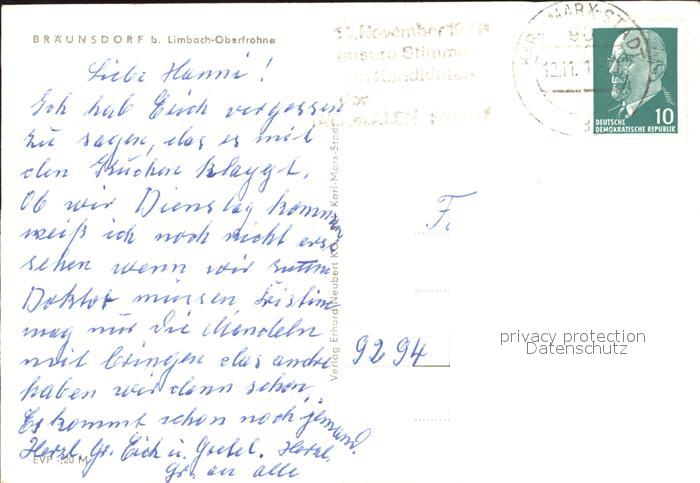 BRÄUNSDORF b. Limbach-Oberfrohna
November 19
unsere Stimme
Kandidaten
der
KARL-MARX-STADT
12.11.
10
DEUTSCHE
DEMOKRATISCHE REPUBLIK
Liebe Hanni!
Ich hab Euch vergessen
zu sagen, das es mit
den Kuchen klappt.
Ob wir Dienstag kommen
weiß ich noch nicht erst
sehen wenn wir zum
Doktor müssen Kristine
mag nur die Mandeln
mit bringen das andre
haben wir dann schon.
Es kommt schon noch jemand.
Herzl. Gr. Euch u. Gretel. Herzl.
Gr. an alle
Verlag Erhard Neubert KG, Karl-Marx-Stadt
F.
9294
privacy protection
Datenschutz
EVP -,20 M